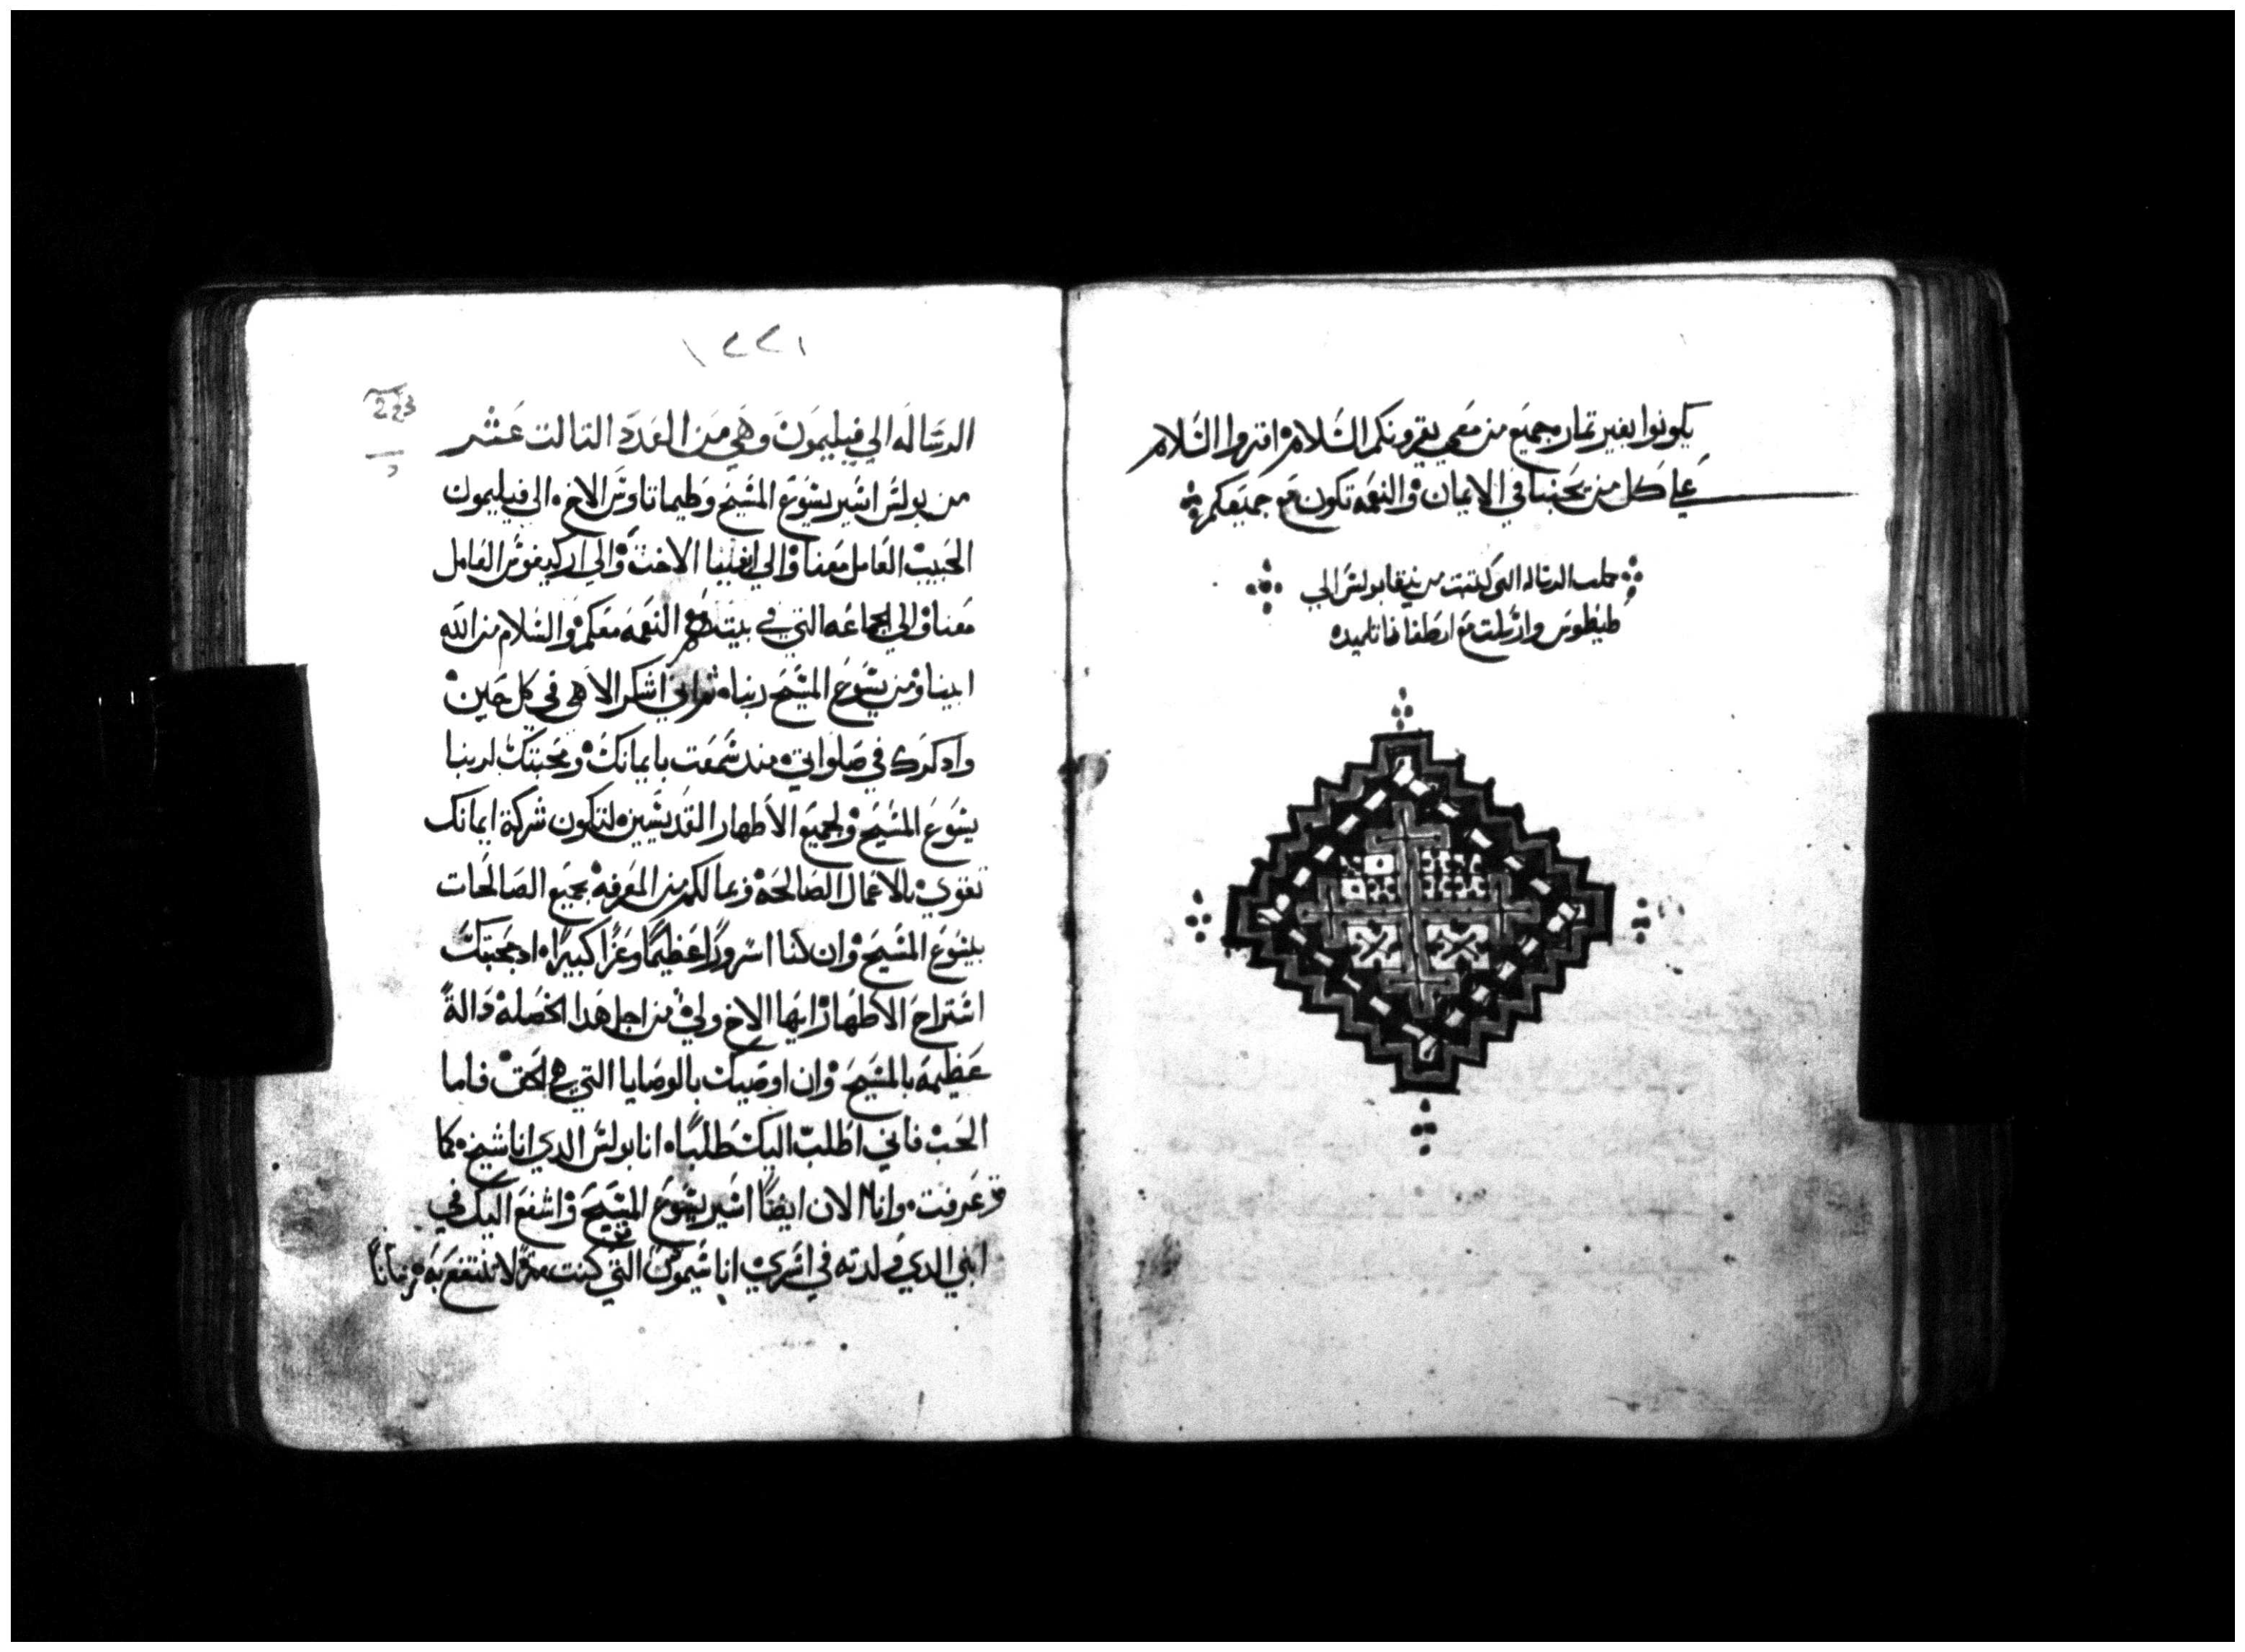 يكونوا بغير تمار وجميع من معي يقرونكم السَّلام اقروا السَّلام
علي كل من يحبنا في الايمان والنعمه تكون مع جميعكم
كملت الرساله التي كتبت من نيقابولس الي
طيطوس وارسلت مع ارطغا تلميده
١٢٢١
الرسَاله الي فيليمون وهي من العَدد التالت عَشر
من بولس اسير يسُوع المسَيح وطيماتاوس الاخ الي فيليمون
الحبيب العَامل معَنا والي افبيا الاخت والي اركيفوس العَامل
معَنا والي الجماعَه التي في بيته النعَمه معَكم والسَلام من الله
ابينا ومن يسُوع المسَيح ربنا ثم اني اشكر الاهي في كل حَين
وادكرك في صَلواتي مند سَمعَت بايمانك ومحَبتك لربنا
يسُوع المسَيح ولجميع الاطهار القديسَين لتكون شركة ايمانك
تقوي بالاعَمال الصَالحَه وبما لكم من المعَرفه بجميع الصَالحَات
بيسُوع المسَيح وان لنا لسَرورًا عَظيمًا وعَزًا كبيرًا اد بمحَبتك
استراحَ الاطهار ايها الاخ ولي من اجل هدا الخصَله دالةً
عَظيمه بالمسَيح وان اوصَيك بالوصَايا التي هي الحق فاما
الحَب فاني اطلب اليك طلبًا انا بولس الدي انا شيخ كما
قد عَرفت وانا الان ايضًا اسَير يسُوع المسَيح واشفع اليك في
ابني الدي ولدته في اسَري انا سَيموس التي كنت مرة لا تنتفع به زمانًا